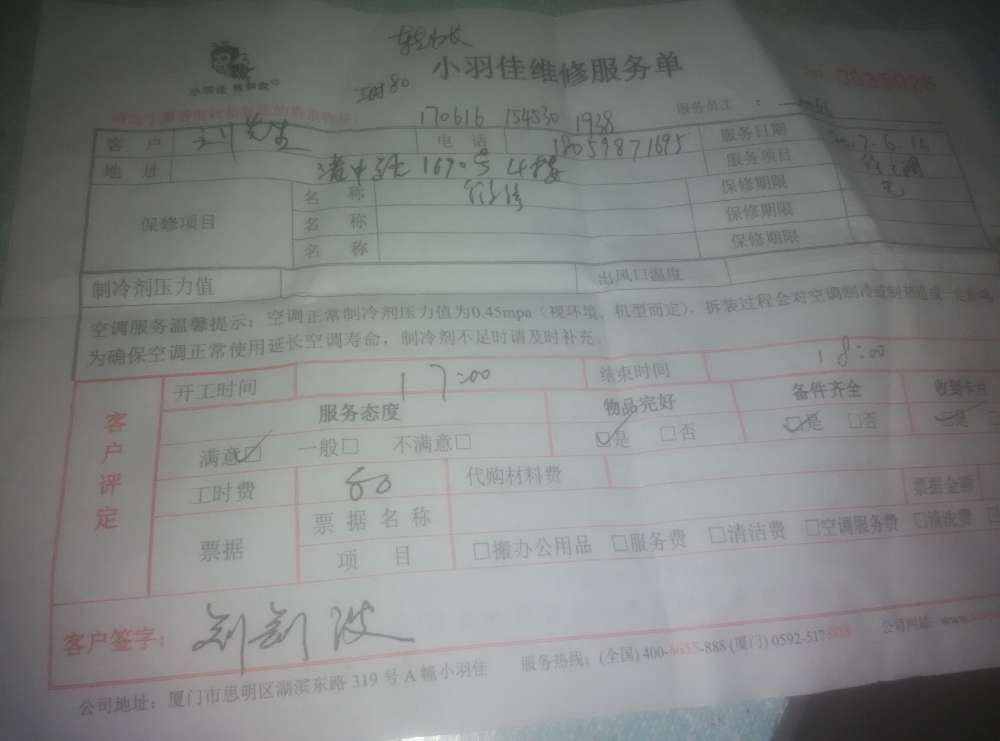 小羽佳维修服务单
小羽佳
工时80
170616 154530 1938
服务员工：
客户 刘先生 电话 18059871695 服务日期 2017.6.16
地址 1690号4楼 服务项目
保修项目 名称 维修 保修期限 无
名称 保修期限
名称 保修期限
制冷剂压力值 出风口温度
空调服务温馨提示：空调正常制冷剂压力值为0.45mpa（视环境、机型而定），拆装过程会对空调制冷或制热造成一定影响，
为确保空调正常使用延长空调寿命，制冷剂不足时请及时补充。
客户评定
开工时间 17:00 结束时间 18:00
服务态度 物品完好 备件齐全
满意☑ 一般□ 不满意□ ☑是 □否 ☑是 □否 ☑是
工时费 80 代购材料费
票据 票据名称 票据金额
项目 □搬办公用品 □服务费 □清洁费 □空调服务费 □清洗费
客户签字：
公司地址：厦门市思明区湖滨东路 319 号 A 幢小羽佳 服务热线：(全国) 400-6655-888 (厦门) 0592-517 公司网址：www.